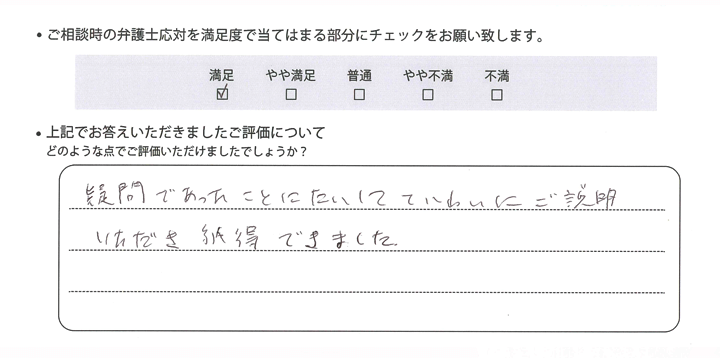 • ご相談時の弁護士応対を満足度で当てはまる部分にチェックをお願い致します。
満足 やや満足 普通 やや不満 不満
☑ ☐ ☐ ☐ ☐
• 上記でお答えいただきましたご評価について
どのような点でご評価いただけましたでしょうか？
疑問であったことにたいして ていねいにご説明
いただき納得できました